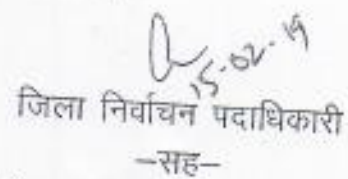 15-02-19
जिला निर्वाचन पदाधिकारी
–सह–